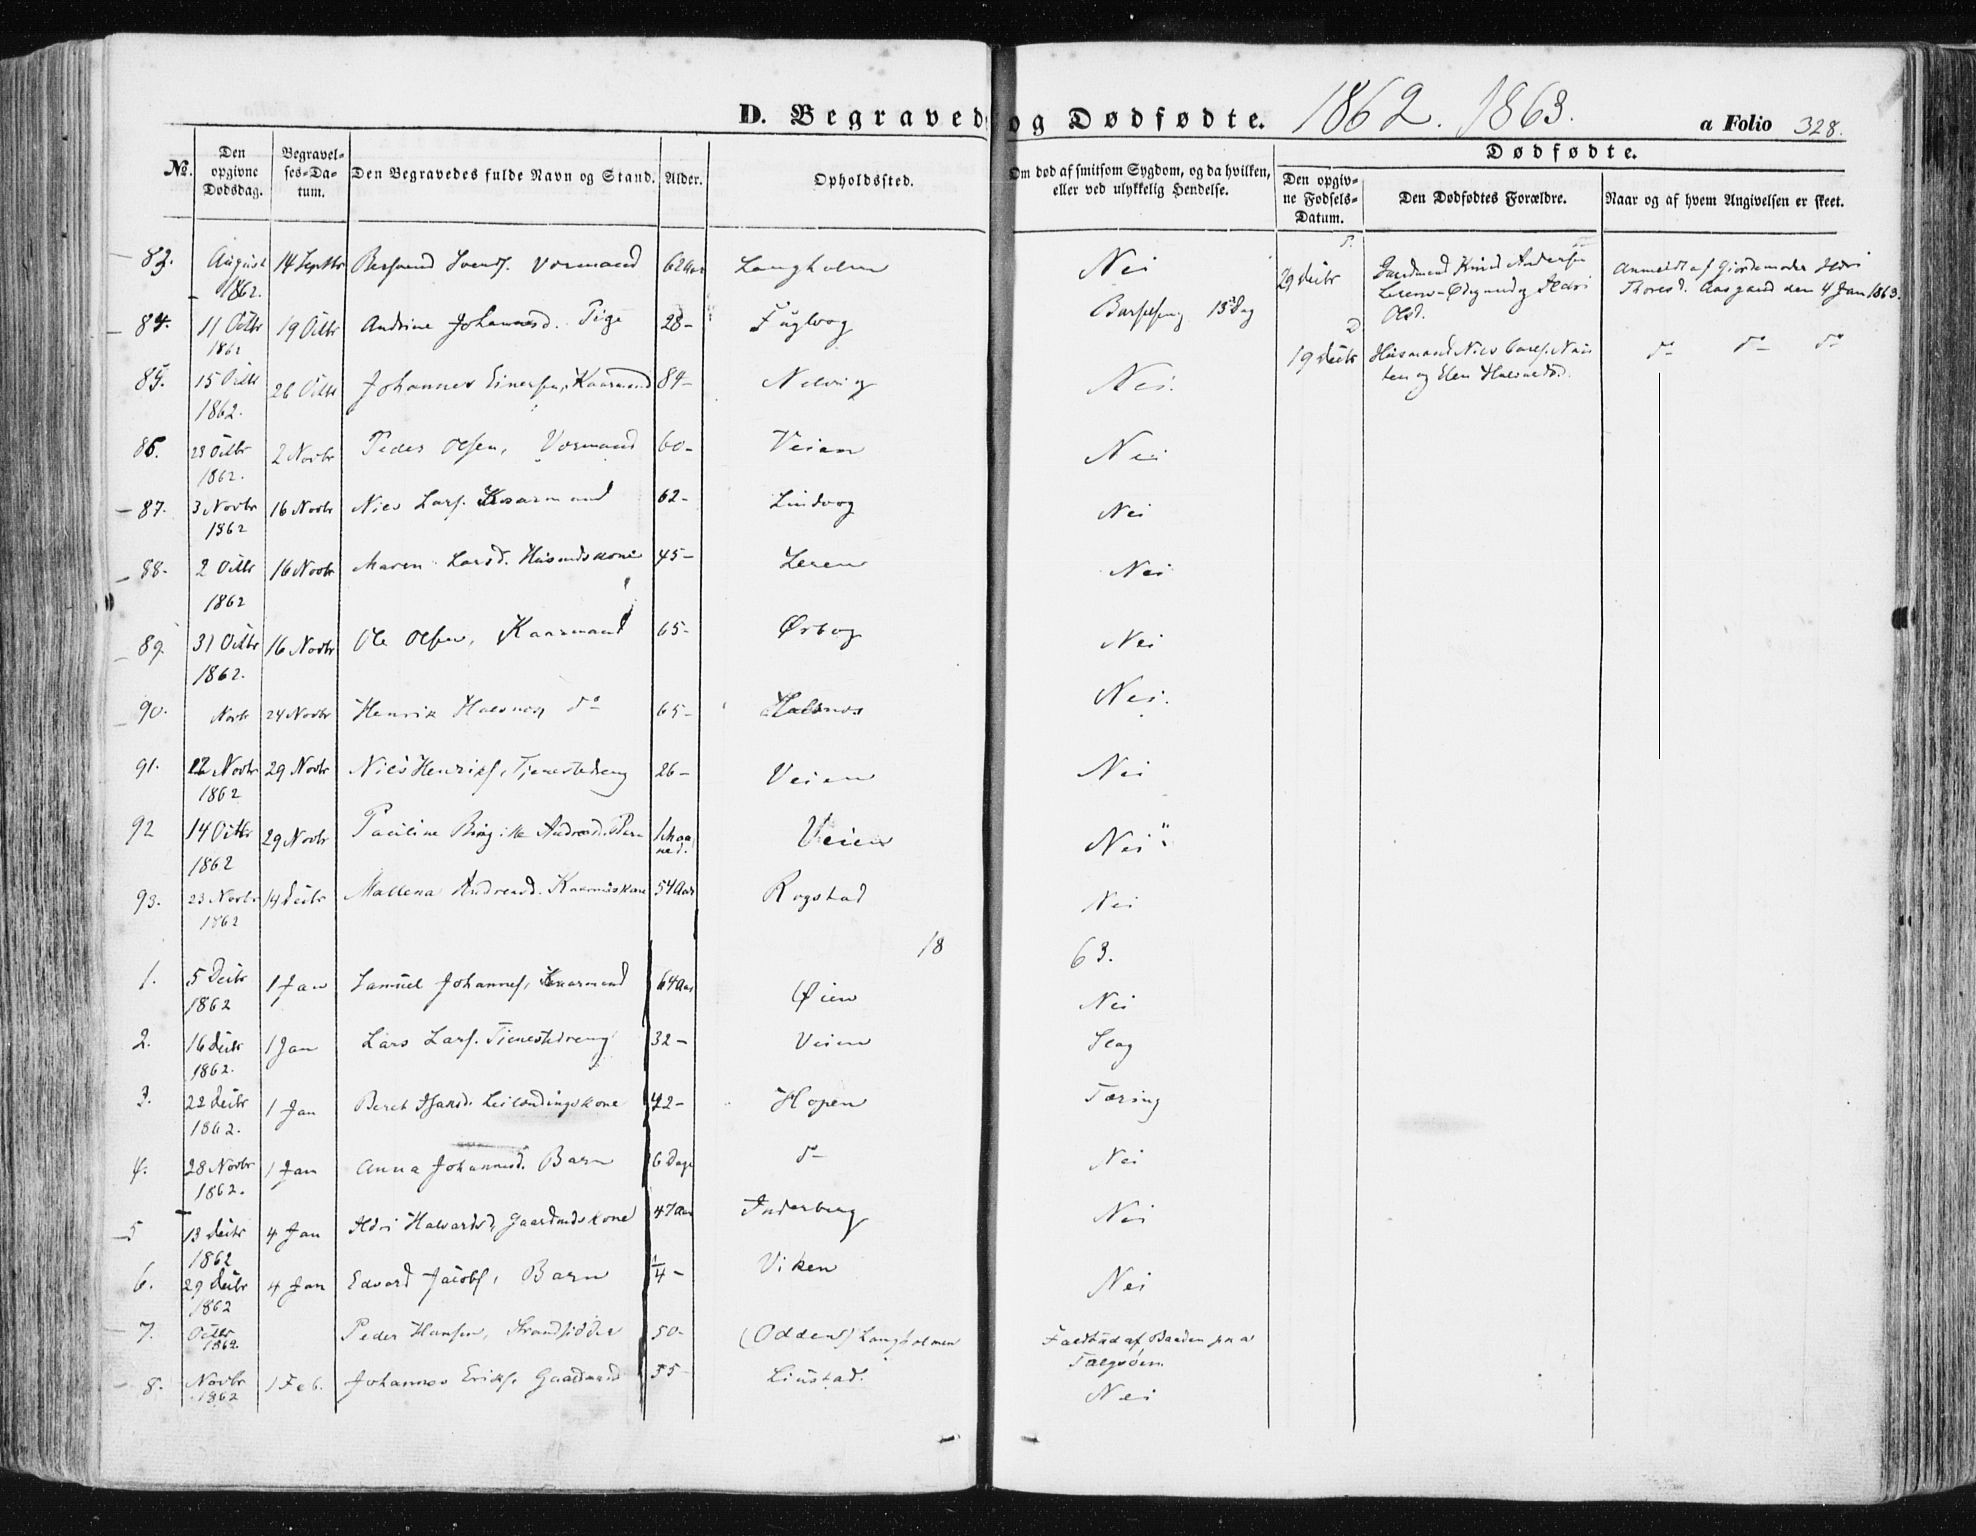 D. Begravede og Dødfødte. 1862. 1863. a Folio 328.
No. Den opgivne Dødsdag. Begravelses-Datum. Den Begravedes fulde Navn og Stand. Alder. Opholdssted. Om død af smitsom Sygdom, og da hvilken, eller ved ulykkelig Hendelse.
Dødfødte.
Den opgivne Fødsels-Datum. Den Dødfødtes Forældre. Naar og af hvem Angivelsen er skeet.
83. August 1862. 14 Septbr 62 Aar Langholmen Nei
84. 11 Octbr 1862 19 Octbr Andrine Johannesd. Pige 28- Fuglvog Barselseng 13 Dag
85. 15 Octbr 1862. 26 Octbr Johannes Einersen, Kaarmand 84- Nelvig Nei.
86. 23 Octbr 1862. 2 Novbr Peder Olsen, Vormand 60- Veien Nei
87. 3 Novbr 1862 16 Novbr Niels Lars. Kaarmand 62- Lindvog Nei
88. 2 Octbr 1862 16 Novbr Maren Larsd. Husmdskone 45- Leren Nei
89. 31 Octbr 1862. 16 Novbr Ole Olsen, Kaarmand 65- Ørbog Nei
90. Novbr 24 Novbr Henrik Halsnæs do 65- Halsnes Nei.
91. 12 Novbr 1862 29 Novbr Niels Henriks, Tjenestedreng 26- Veien Nei
92 14 Octbr 1862 29 Novbr Pauline Birgitte Andreasd. Barn Maaned. Veien Nei
93. 23 Novbr 1862 14 Decbr Mallena Andreasd. Kaarmdskone 54 Aar Rogstad Nei
1863.
1. 5 Decbr 1862 1 Jan Samuel Johannes, Kaarmand 64 Aar Øien Nei
2. 16 Decbr 1862. 1 Jan Lars Lars. Tjenestedreng 32- Veien Slag
3. 22 Decbr 1862. 1 Jan Beret Hansd. Leilendingskone 42- Hopen Tæring
4. 28 Novbr 1862. 1 Jan Anna Johannesd. Barn 6 Dage do Nei
5 13 Decbr 1862 4 Jan Ildri Halvardsd, Gaardmdskone 47 Aar Inderberg Nei
6. 29 Decbr 1862 4 Jan Edvard Jacobs, Barn 1/4- Viken Nei
7. Octbr 1862. Peder Hansen, Strandsidder 50- (Odden) Langholmen Faldt ud af Baaden paa Talgsöen
8. Novbr 1862 1 Feb. Johannes Eriks, Gaardmand 55- Liustad. Nei
29 Decbr Gardmand Knud Andersen Leren-Ødegaard og Ildri Olsd. Anmeldt af Giordemoder Ildri Thoresd. Aasgaard den 4 Jan 1863.
19 Decbr Husmand Niels og Elen Halvardsd. do do do